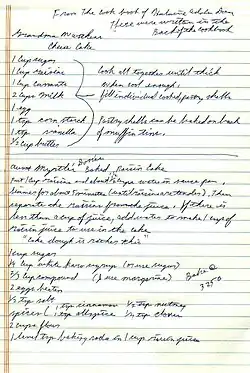 From the Cook book of
These were written in the
Back of the cookbook
Grandma
Cheese Cake
1 Cup sugar
1 Cup raisins
1 Cup currants
2 Cups milk
1 egg
1 tsp. corn starch
1 tsp. vanilla
1/2 Cup butter
Cook all together until thick
When cool enough,
fill individual cooked pastry shells
Pastry shells can be baked on back
of muffin tins.
Aunt Myrtle Baked Raisin Cake
Put 1 Cup raisins and about 2 Cups water in sauce pan,
simmer for about 5 minutes (until raisins are tender). Then
separate the raisins from the juice. If there is
less than a cup of juice, add water to make 1 cup of
raisin juice to use in the cake
"Cake dough is rather thin"
1 Cup sugar
1/4 Cup white Karo syrup (or use sugar)
Cup compound (I use margarine)
Bake @
350
2 eggs beaten
1/2 tsp salt
spices (1 tsp cinnamon 1/2 tsp nutmeg
1 tsp allspice 1/2 tsp cloves
2 Cups flour
1 level tsp. baking soda in 1 cup raisin juice